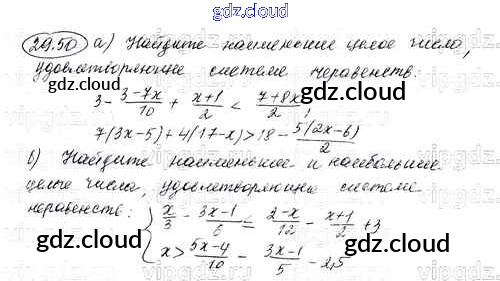 gdz.cloud
29.50 а) Найдите наименьшее целое число,
удовлетворяющее системе неравенств.
3 - \frac{3-7x}{10} + \frac{x+1}{2} < \frac{7+8x}{2},
7(3x-5)+4(17-x)>18 - \frac{5(2x-6)}{2}
б) Найдите наименьшее и наибольшие
целые числа, удовлетворяющие системе
неравенств: { \frac{x}{3} - \frac{3x-1}{6} ≤ \frac{2-x}{12} - \frac{x+1}{2} + 3
x > \frac{5x-4}{10} - \frac{3x-1}{5} - 2,5
gdz.cloud gdz.cloud
gdz.cloud gdz.cloud
gdz.cloud gdz.cloud